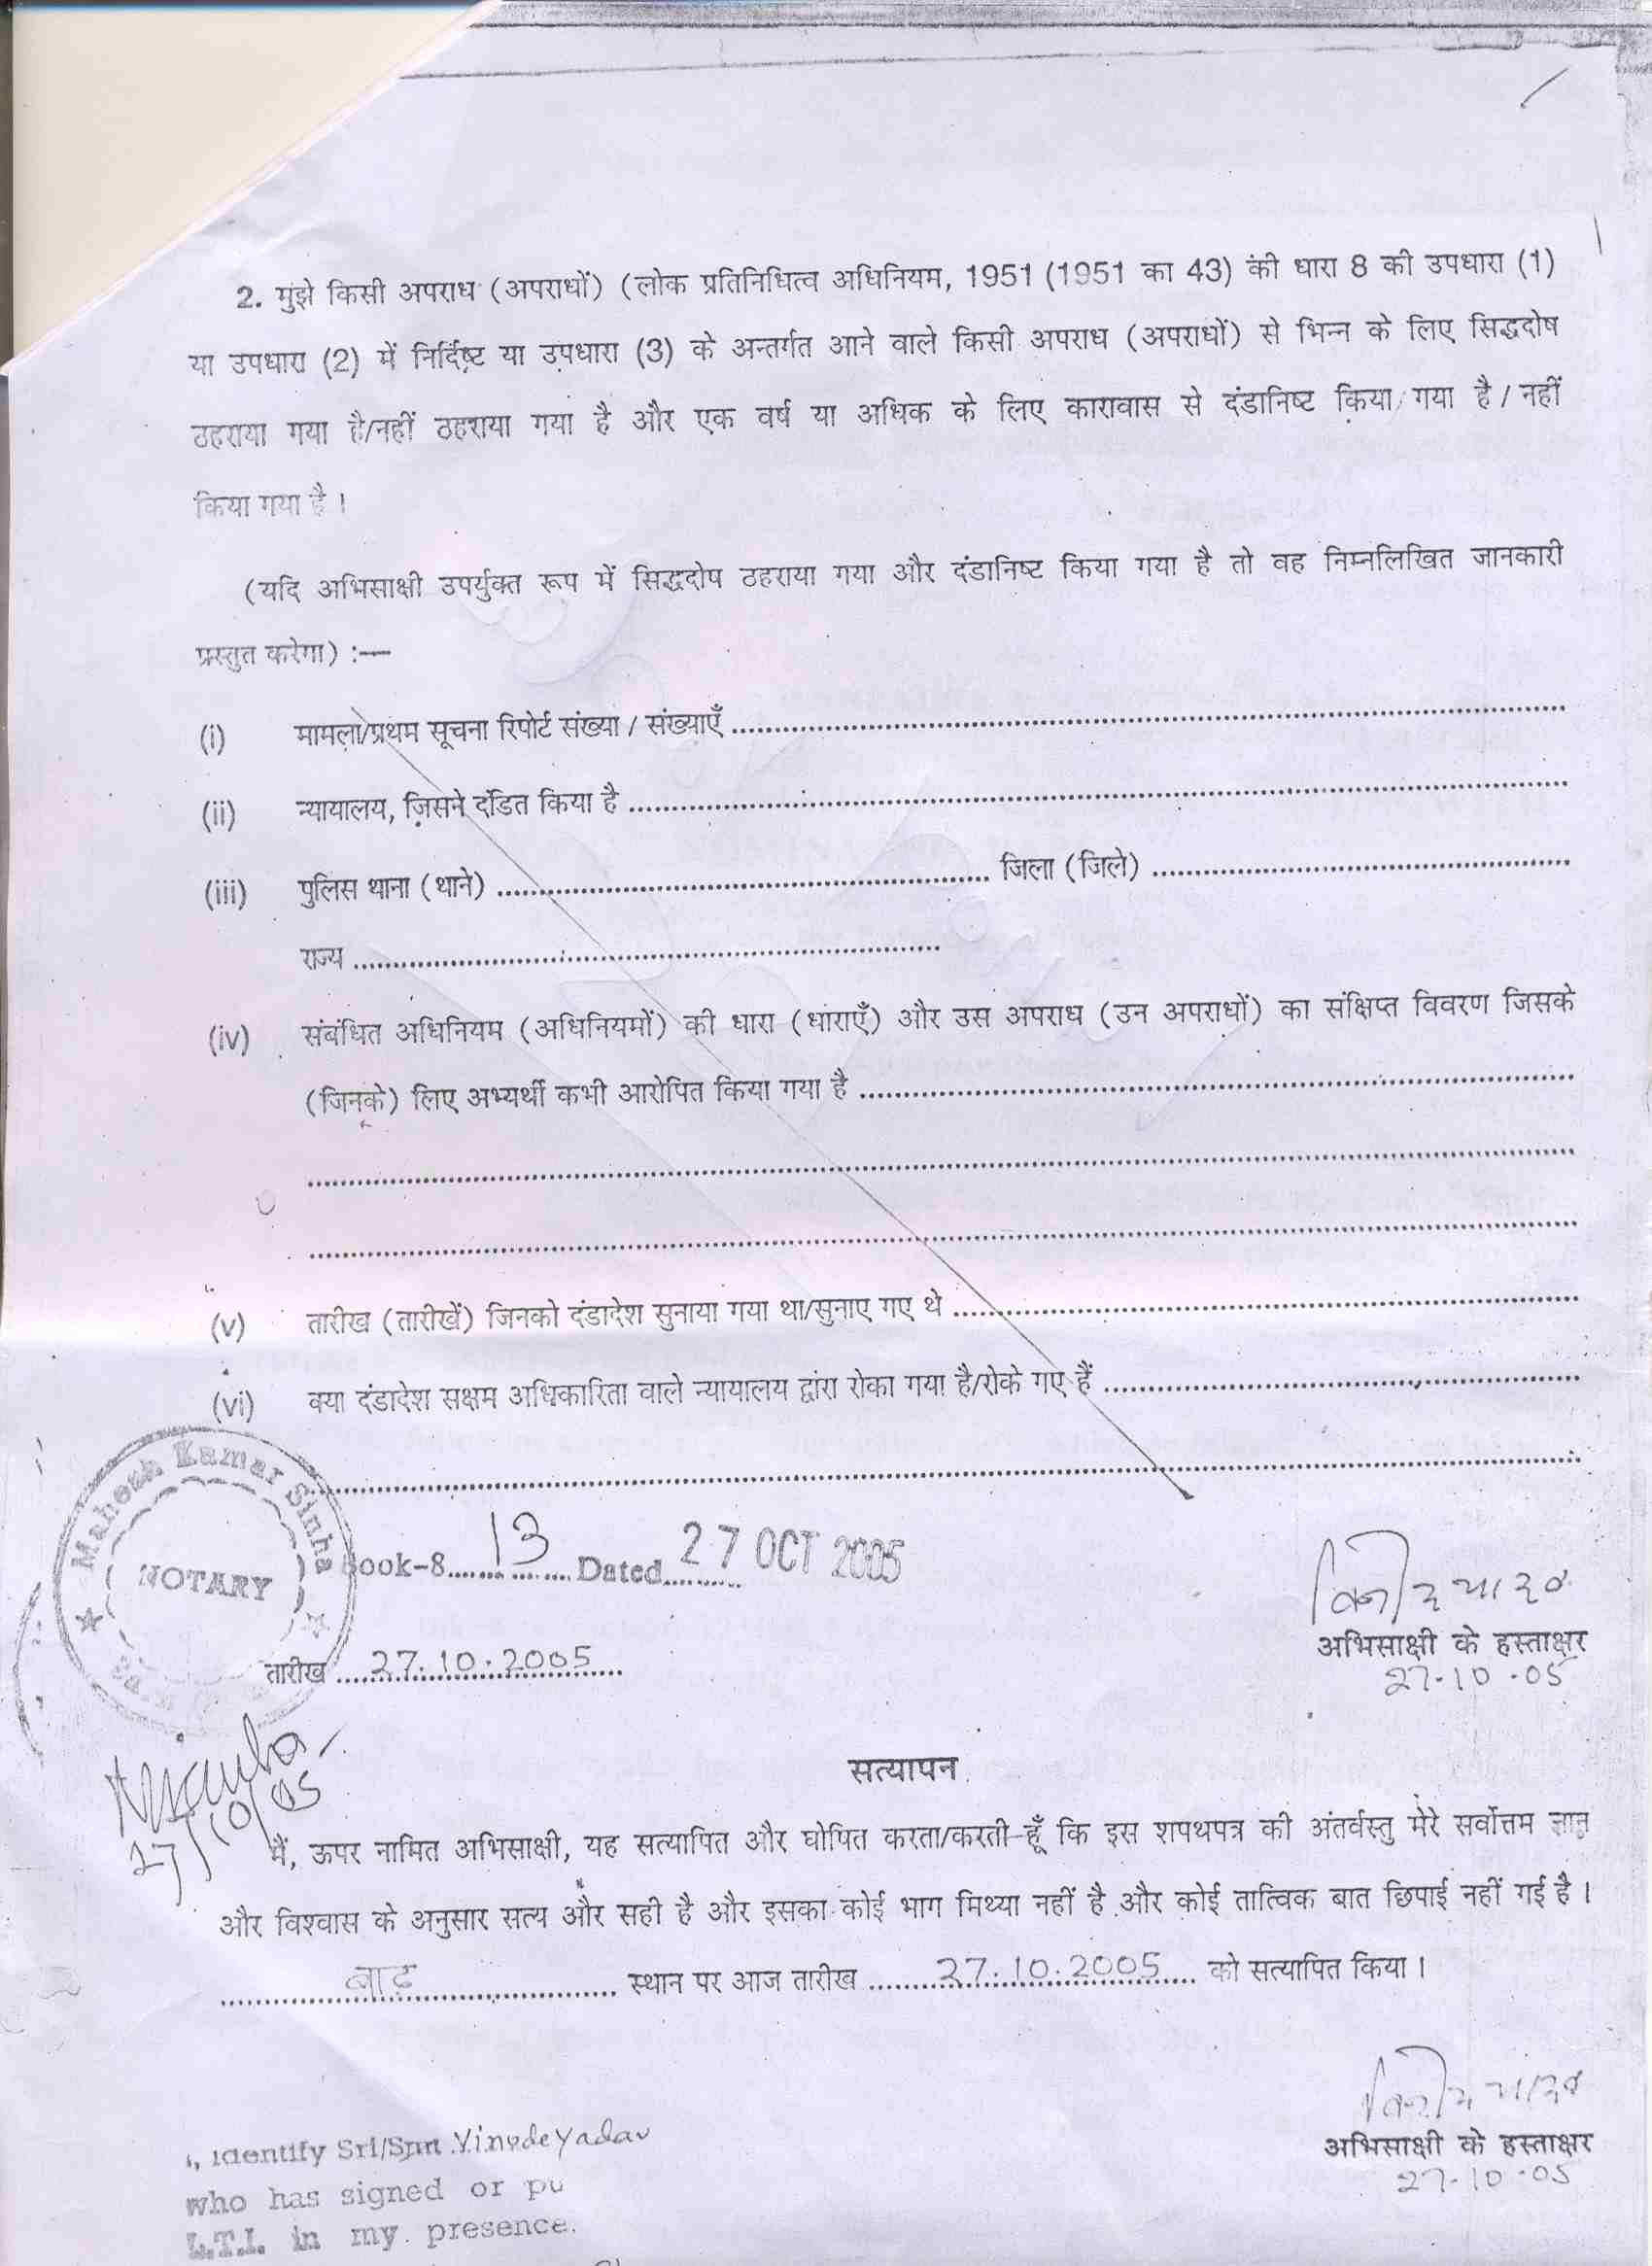 2. मुझे किसी अपराध (अपराधों) (लोक प्रतिनिधित्व अधिनियम, 1951 (1951 का 43) की धारा 8 की उपधारा (1)
या उपधारा (2) में निर्दिष्ट या उपधारा (3) के अन्तर्गत आने वाले किसी अपराध (अपराधों) से भिन्न के लिए सिद्धदोष
ठहराया गया है/नहीं ठहराया गया है और एक वर्ष या अधिक के लिए कारावास से दंडानिष्ट किया गया है / नहीं
किया गया है ।
(यदि अभिसाक्षी उपर्युक्त रूप में सिद्धदोष ठहराया गया और दंडानिष्ट किया गया है तो वह निम्नलिखित जानकारी
प्रस्तुत करेगा) :—
(i) मामला/प्रथम सूचना रिपोर्ट संख्या / संख्याएँ
(ii) न्यायालय, जिसने दंडित किया है
(iii) पुलिस थाना (थाने) जिला (जिले)
राज्य
(iv) संबंधित अधिनियम (अधिनियमों) की धारा (धाराएँ) और उस अपराध (उन अपराधों) का संक्षिप्त विवरण जिसके
(जिनके) लिए अभ्यर्थी कभी आरोपित किया गया है
(v) तारीख (तारीखें) जिनको दंडादेश सुनाया गया था/सुनाए गए थे
(vi) क्या दंडादेश सक्षम अधिकारिता वाले न्यायालय द्वारा रोका गया है/रोके गए हैं
Mahesh Kumar Sinha
NOTARY
Book-8 13 Dated 27 OCT 2005
तारीख 27.10.2005
अभिसाक्षी के हस्ताक्षर
27-10-05
27/10/05
सत्यापन
मैं, ऊपर नामित अभिसाक्षी, यह सत्यापित और घोषित करता/करती हूँ कि इस शपथपत्र की अंतर्वस्तु मेरे सर्वोत्तम ज्ञान
और विश्वास के अनुसार सत्य और सही है और इसका कोई भाग मिथ्या नहीं है और कोई तात्विक बात छिपाई नहीं गई है ।
बाढ़ स्थान पर आज तारीख 27.10.2005 को सत्यापित किया ।
अभिसाक्षी के हस्ताक्षर
27-10-05
I, Identify Sri/Smt Vinode Yadav
who has signed or pu
L.T.I. in my presence.